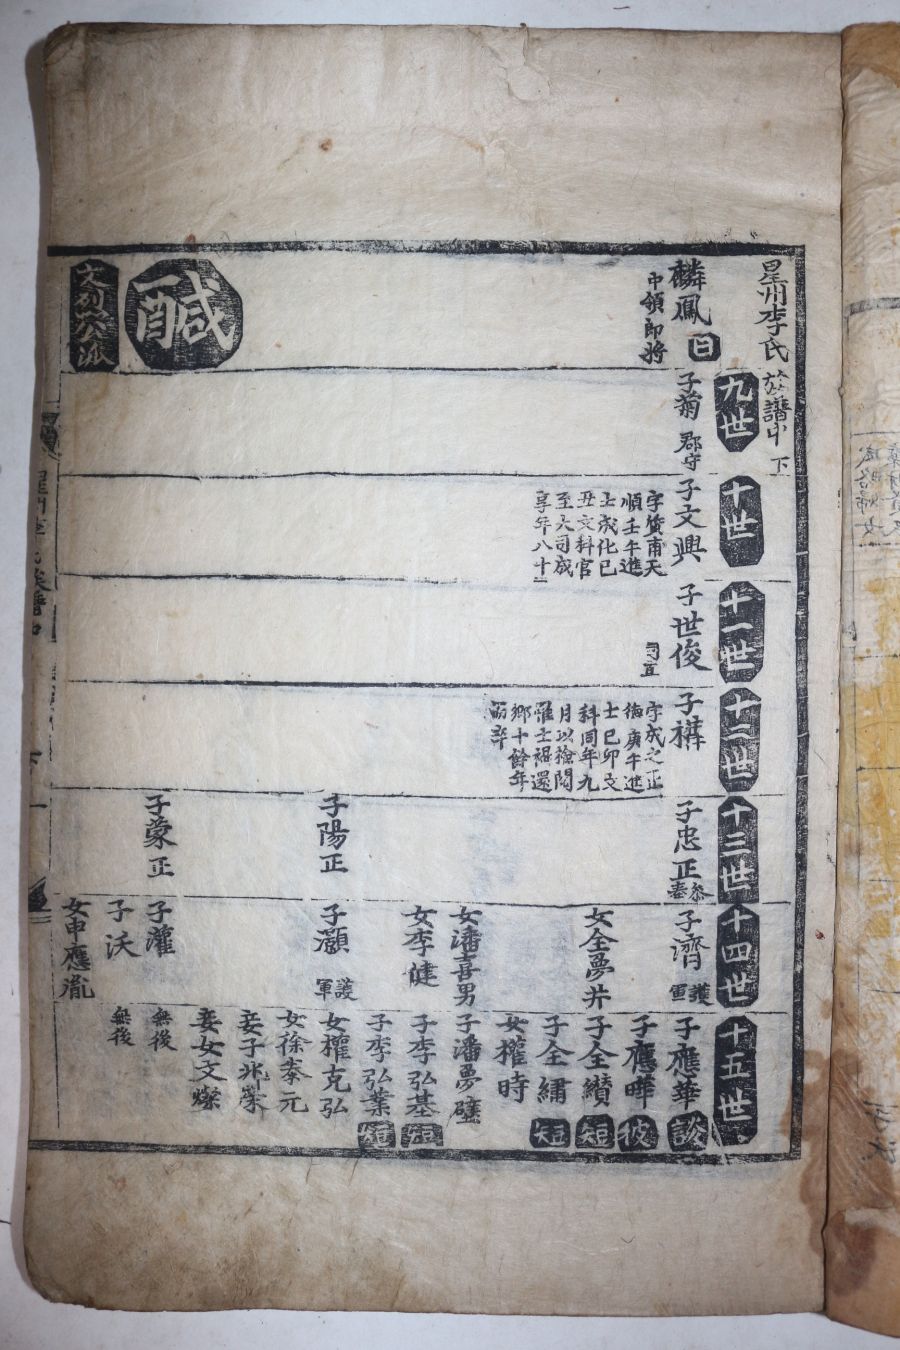 星州李氏族譜中 下
麟鳳
中領郎將
日
鹹
文烈公派
九世
子菊 郡守
十世
子文興
字質甫天
順壬午進
士成化己
丑文科官
至大司成
享年八十一
十一世
子世俊
司直
十二世
子構
字成之正
德庚午進
士己卯文
科同年九
月以檢閱
罷士禍還
鄉十餘年
而卒
十三世
子忠正
參奉
子陽正
子蒙正
十四世
子濟 護軍
女全夢井
女潘喜男
女李健
子灝 護軍
子灌
子沃
女申應胤
十五世
子應華 談
子應曄 彼
子全纘 短
子全繡 短
女權時
子潘夢璧
子李弘基 短
子李弘業 短
女權克弘
女徐泰元
妾子兆榮
妾女文燦
無後
無後